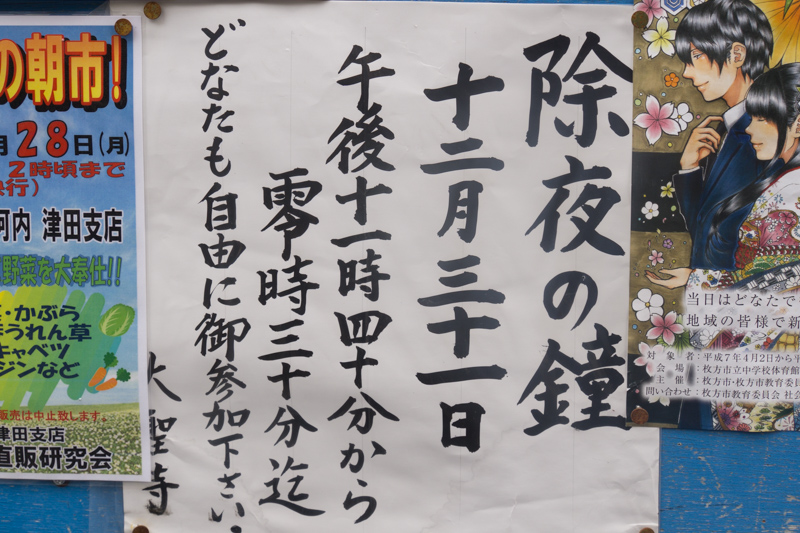 除夜の鐘
十二月三十一日
午後十一時四十分から
零時三十分迄
どなたも自由に御参加下さい。
大聖寺
の朝市!
月28日(月)
12時頃まで
決行)
河内 津田支店
野菜を大奉仕!!
・かぶら
うれん草
キャベツ
ジンなど
販売は中止致します。
津田支店
直販研究会
当日はどなたで
地域の皆様で新
対 象 者:平成7年4月2日から平
会 場:枚方市立中学校体育館
主 催:枚方市・枚方市教育委員
問い合わせ:枚方市教育委員会 社会